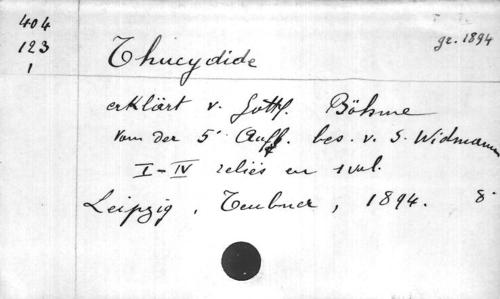 404
123
1
gr. 1894
Thucydide
erklärt v. Gottf. Böhme
Von der 5' Aufl. bes. v. S. Widmann
I-IV reliés en 1 vol.
Leipzig, Teubner, 1894. 8°